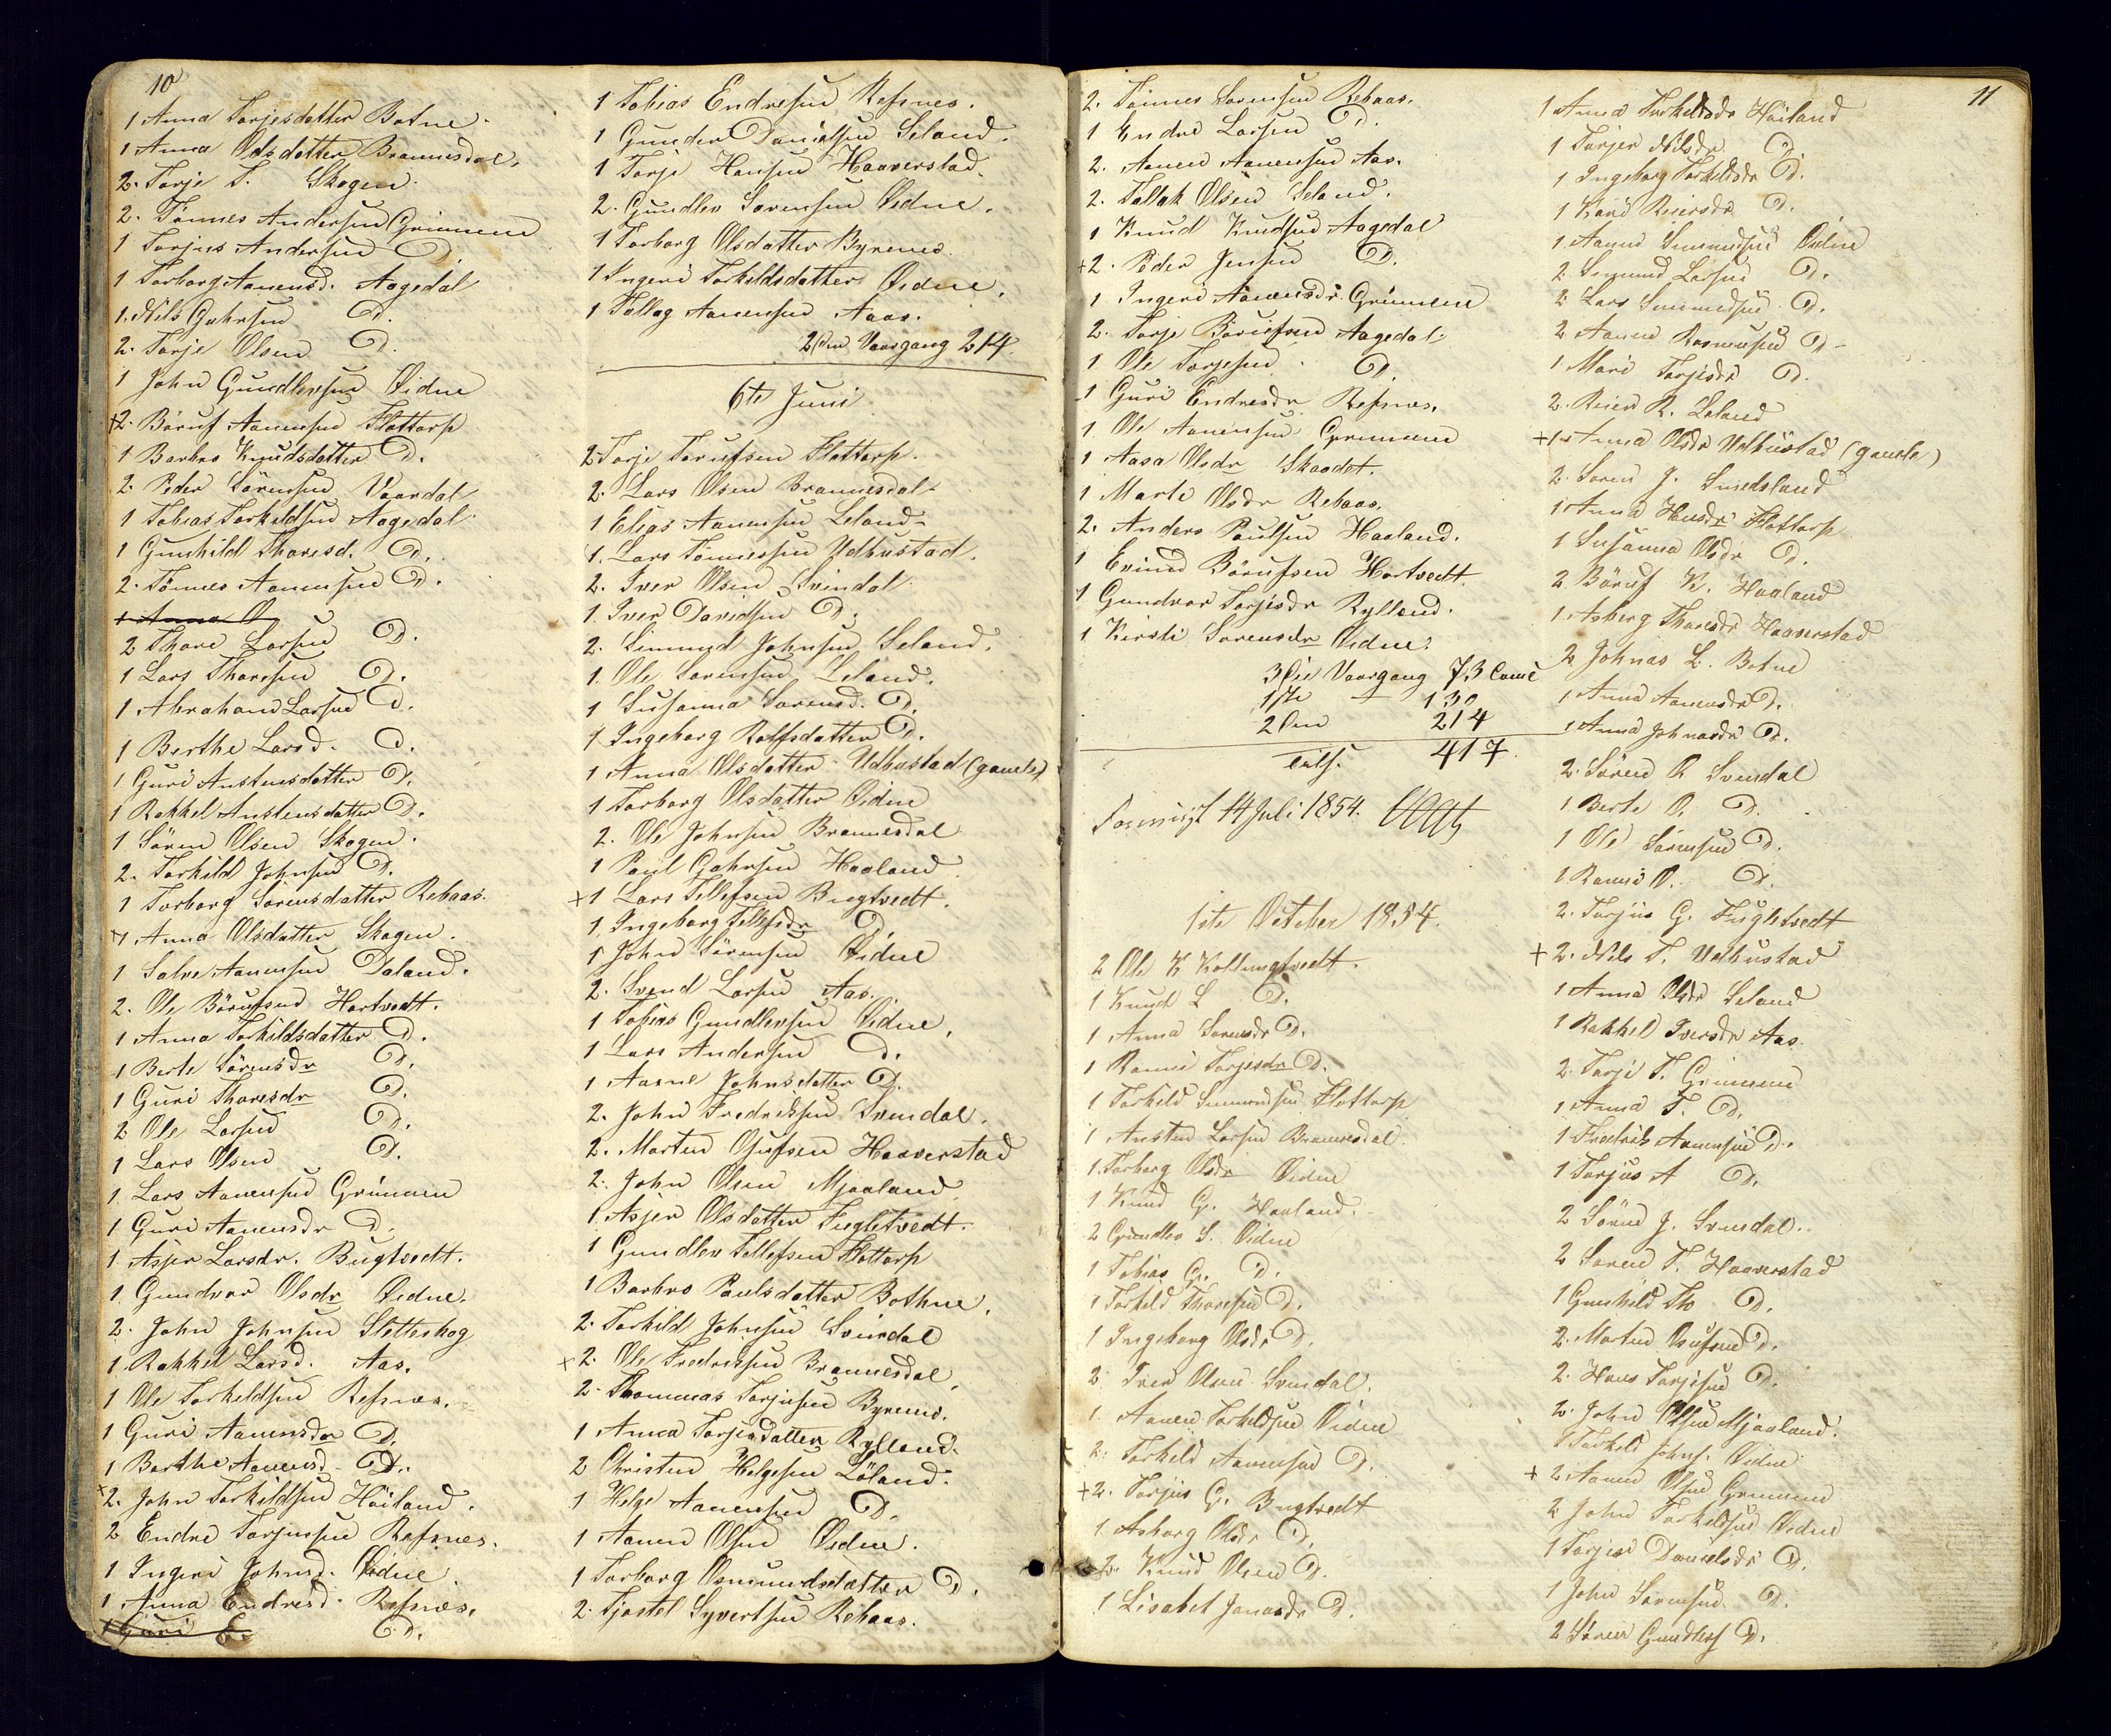 10
1 Anna Torjesdatter Botne.
1 Anna Olsdatter Brannesdal.
2. Torje T. Skogen.
2. Tönnes Andersen Grimmen
1 Torjus Andersen D.
1 Torborg Aanensd. Aagedal
1. Nils Gahrsen D.
2. Torje Olsen D.
1 John Gundlevsen Eidne
+2. Böruf Aanensen Flottorp
1 Barbro Knudsdatter D.
2. Peder Sörensen Vaardal
1 Tobias Torkildsen Aagedal.
1 Gunhild Thoresd. D.
2. Tönnes Aanensen D.
1 Anna O
2 Thore Larsen D.
1 Lars Thoresen D.
1 Abraham Larsen D.
1 Berthe Larsd. D.
1 Guri Anstensdatter D.
1 Rakkel Anstensdatter D.
1 Sören Olsen Skogen.
2. Torkild Johnsen D.
1 Torborg Sörensdatter Rebaas.
+1 Anna Olsdatter Skogen.
1 Salve Aanensen Daland.
2. Ole Börufsen Hortvedt.
1 Anna Torkildsdatter D.
1 Berte Sörensdr D.
1 Guri Thoresdr D.
2 Ole Larsen D.
1 Lars Olsen D.
1 Lars Aanensen Grimmen
1 Guri Aanensdr D.
1 Asjer Larsdr. Bugtvedt.
1 Gundvor Olsdr Eidne.
2. John Johnsen Sletteskog
1. Rakkel Larsd. Aas.
1 Ole Torkeldsen Refsnes.
1 Guri Aanensdr D.
1 Berthe Aanensd. D.
+2. John Torkildsen Höiland.
2 Endre Torjussen Refsnes.
1 Ingeri Johnsd. Eidne.
1 Anna Endresd. Refsnes.
1 Guri E. D.
1 Tobias Endresen Refsnes.
1 Gunder Danielsen Seland.
1 Torje Hansen Haaverstad.
2. Gundlev Sörensen Eidne.
1 Torborg Olsdatter Byremo.
1 Ingeri Torkildsdatter Eidne.
1 Tollag Aanensen Aaas.
2den Vaargang 214.
6te Juni
2 Torje Torufsen Flottorp.
2. Lars Olsen Brannesdal.
1 Elias Aanensen Leland.
1. Lars Tönnessen Udhustad.
2. Iver Olsen Svindal.
1. Iver Davidsen D.
2. Simund Johnsen Seland.
1. Ole Sorensen Leland.
1 Susanna Sorensd. D.
1 Ingeborg Rolfsdatter D.
1 Anna Olsdatter Udhustad (gamle)
1 Torborg Olsdatter Eidne
2. Ole Johnsen Brannesdal
1 Paul Gahrsen Haaland.
+1 Lars Tellefsen Bugtvedt.
1. Ingeborg Tellefsdr D.
1 John Sörensen Eidne
2. Svend Larsen Aas.
1 Tobias Gundlevsen Eidne.
1 Lars Andersen D.
1 Aasne Johnsdatter D.
2. John Fredriksen Svendal.
2. Morten Osufsen Haaverstad
2. John Olsen Mjaaland.
1. Asjer Olsdatter Fugletvedt.
1 Gundlev Tellefsen Flottorp
1 Barbro Paulsdatter Bothne.
2. Torkild Johnsen Svindal
+2. Ole Fredriksen Brannesdal.
2. Thommas Torjusen Byremo.
1 Anna Torjesdatter Rylland.
2 Christen Helgesen Löland.
1 Helge Aanensen D.
1 Aanen Olsen Eidne.
1 Torborg Osmundsdatter D.
2. Tjostel Syvertsen Rebaas.
2. Tönnes Sorensen Rebaas.
1 Endre Larsen D.
2. Aanen Aanensen Aas.
2. Tollak Olsen Seland.
1 Knud Knudsen Aagedal
+2. Peder Jensen D.
1 Ingeri Aanensdr. Grimmen
2. Torje Börufsen Aagedal.
1 Ole Torjesen D.
1 Guri Endresdr Refsnes.
1 Ole Aanensen Grimmen
1 Aasa Olsdr Skaadet.
1 Marte Olsdr Rebaas.
2. Anders Paulsen Haaland.
1 Evind Börufsen Hortvedt.
1 Gundvor Torjesdr Rylland.
1 Kirsti Sorensdr Eidne.
3die Vaargang 73 Com
1ste — 130
2den 214
Tils. 417.
14 Juli 1854.
1ste October 1854.
2 Ole K Kollungtvedt.
1 Knud L D.
1 Anna Sorensdr D.
1 Ranni Torjesdr D.
1 Torkeld Simundsen Flottorp
1 Austen Larsen Brannesdal.
1. Torborg Olsdr Eidne
1 Knud G. Haaland.
2 Gundlev S. Eidne
1 Tobias G. D.
1 Torkeld Thoresen D.
1 Ingeborg Olsdr D.
2 Iver Olsen Svendal.
1. Aanen Torkeldsen Eidne
2. Torkeld Aanensen D.
+2. Torjus G. Bugtvedt
1. Asborg Olsdr D.
2. Knud Olsen D.
1 Lisabet Jonasdr D.
11
1 Anna Torkeldsdr Höiland
1 Torjer Nilsdr D.
1 Ingeborg Torkeldsdr D.
1 Kari Reiersdr D.
1. Aanen Simundsen Eidne
2. Simund Larsen D.
2 Lars Simundsen D.
2 Aanen Rasmussen D.
1 Mari Torjesdr D.
2. Reier R. Leland
+1 Anna Olsdr Udhustad (gamle)
2. Soren J. Smedsland
1 Anna Hansdr Flottorp
1 Susanna Olsdr D.
2 Böruf K. Haaland
1 Asberg Thoresdr Haaverstad
2 Johnas L. Botne
1 Anna Aanensdr D.
1 Anna Johnasdr D.
2. Sören R Svendal
1 Berte O. D.
1 Ole Sörensen D.
1 Ranni O. D.
2. Torjus G. Fugletvedt
+2. Nils T. Udhustad
1 Anna Olsdr Seland
1 Rakkel Iversdr Aas.
2. Torje T. Grimmen
1 Anna T. D.
1 Fredrik Aanensen D.
1 Torjus A D.
2 Sören J. Svendal.
2 Soren T. Haaverstad
1 Gunhild Th D.
2. Morten Osufsen D.
2. Hans Torjesen D.
2. John Olsen Mjaaland.
1 Torkeld Johns. Eidne
+2. Aanen Olsen Grimmen
2 John Torkeldsen Eidne
1 Torjer Danielsdr D.
1 John Sörensen D.
2 Sören Gundlevs D.